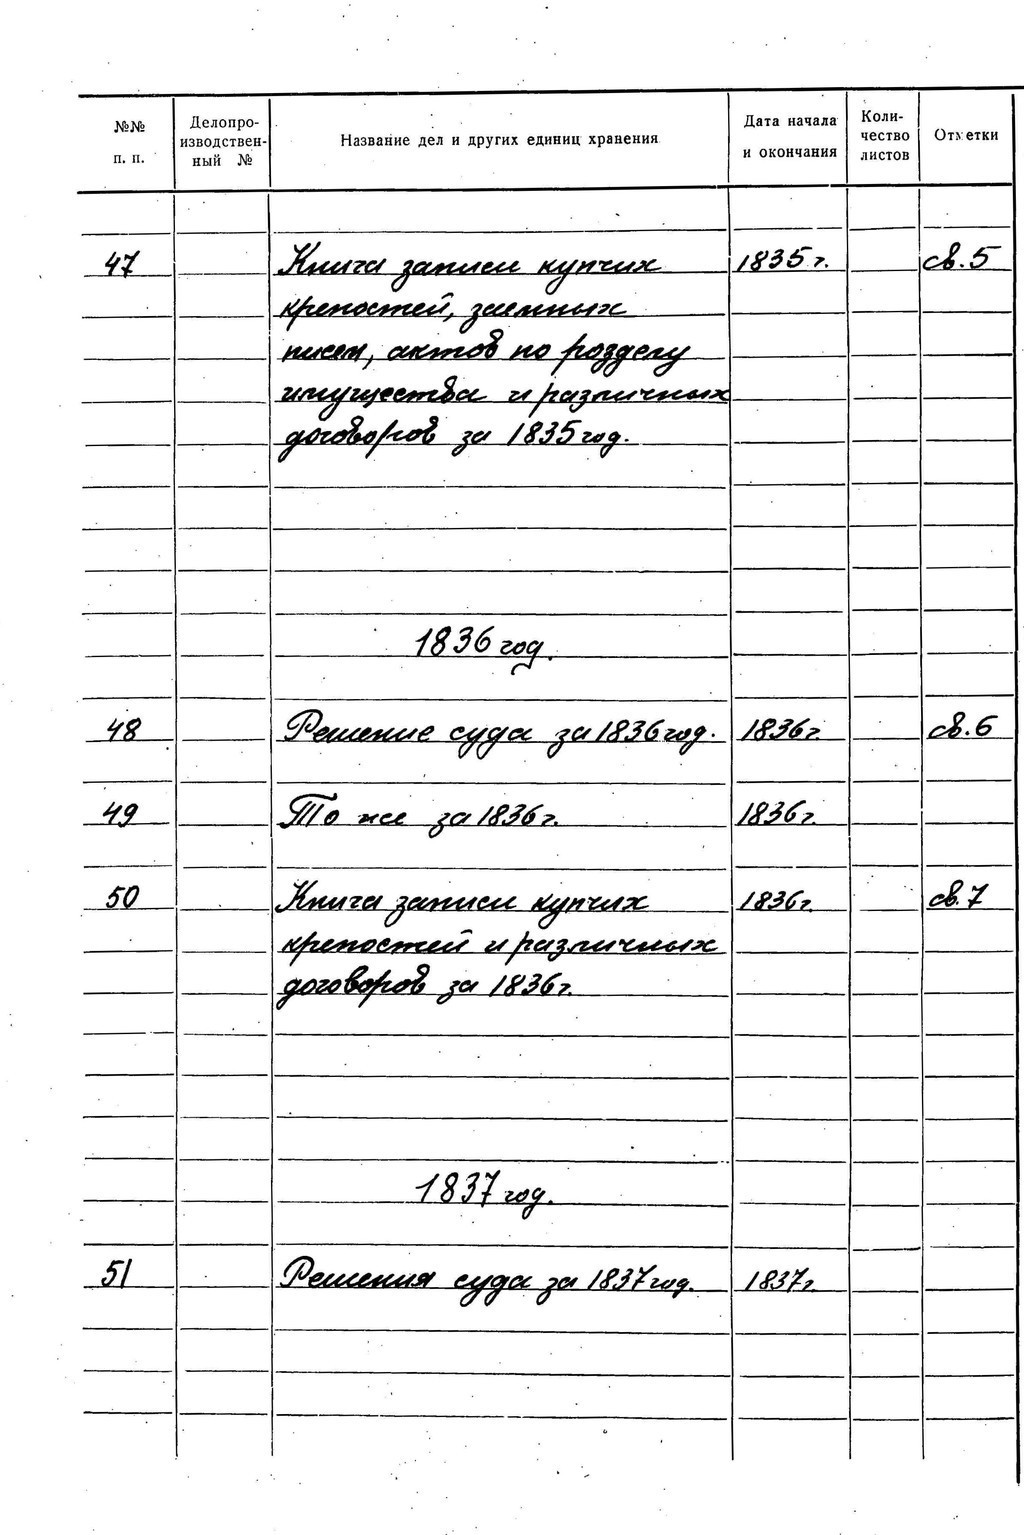 №№ п. п. Делопро- изводствен- ный № Название дел и других единиц хранения Дата начала и окончания Коли- чество листов Отметки
47 Книга записи купчих 1835 г. св. 5
крепостей, заемных
писем, актов по розделу
имущества и различных
договоров за 1835 год.
1836 год.
48 Решение суда за 1836 год. 1836 г. св. 6
49 То же за 1836 г. 1836 г.
50 Книга записи купчих 1836 г. св. 7
крепостей и различных
договоров за 1836 г.
1837 год.
51 Решения суда за 1837 год. 1837 г.